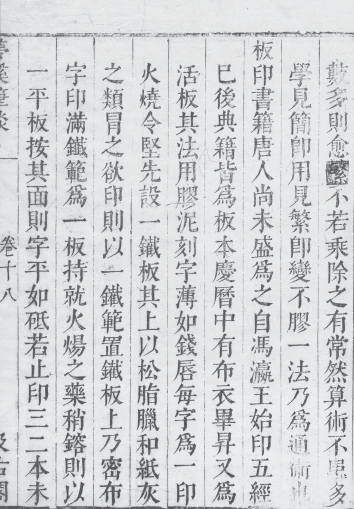 數多則愈繁不若乘除之有常然算術不患多
學見簡即用見繁即變不膠一法乃爲通術也
板印書籍唐人尚未盛爲之自馮瀛王始印五經
已後典籍皆爲板本慶曆中有布衣畢昇又爲
活板其法用膠泥刻字薄如錢唇每字爲一印
火燒令堅先設一鐵板其上以松脂臘和紙灰
之類冒之欲印則以一鐵範置鐵板上乃密布
字印滿鐵範爲一板持就火煬之藥稍鎔則以
一平板按其面則字平如砥若止印三二本未
夢溪筆談
卷十八
汲古閣